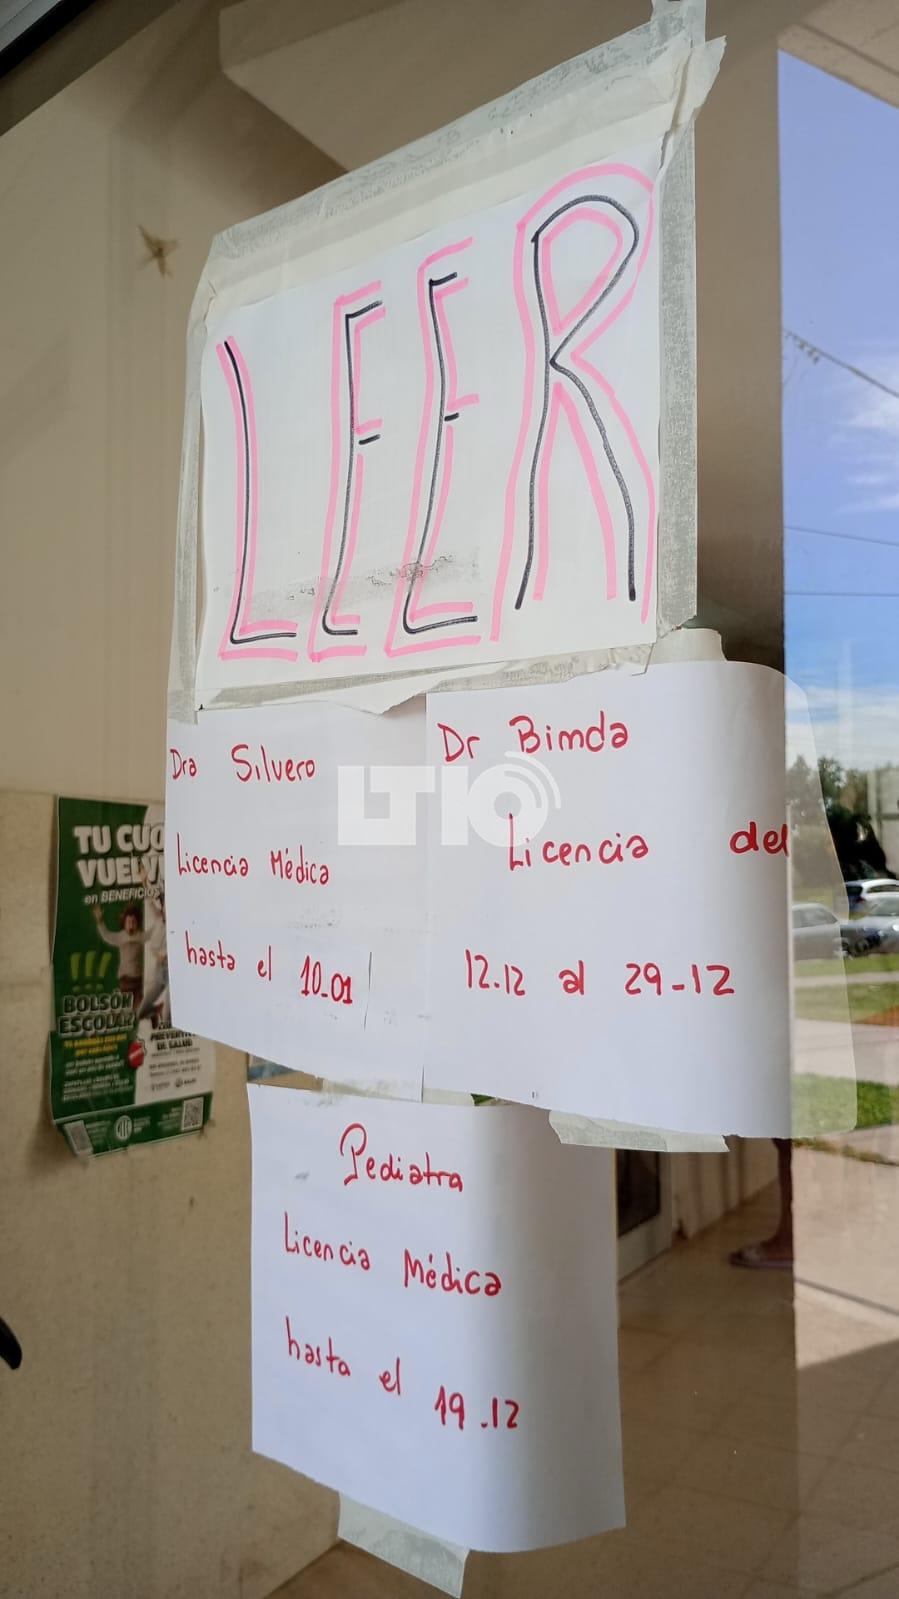 LEER
Dra Silvero
Licencia Médica
hasta el 10-01
Dr Bimda
Licencia del
12.12 al 29-12
Pediatra
Licencia Médica
hasta el 19-12
LT10
TU CUO
VUELV
en BENEFICIOS
BOLSÓN
ESCOLAR